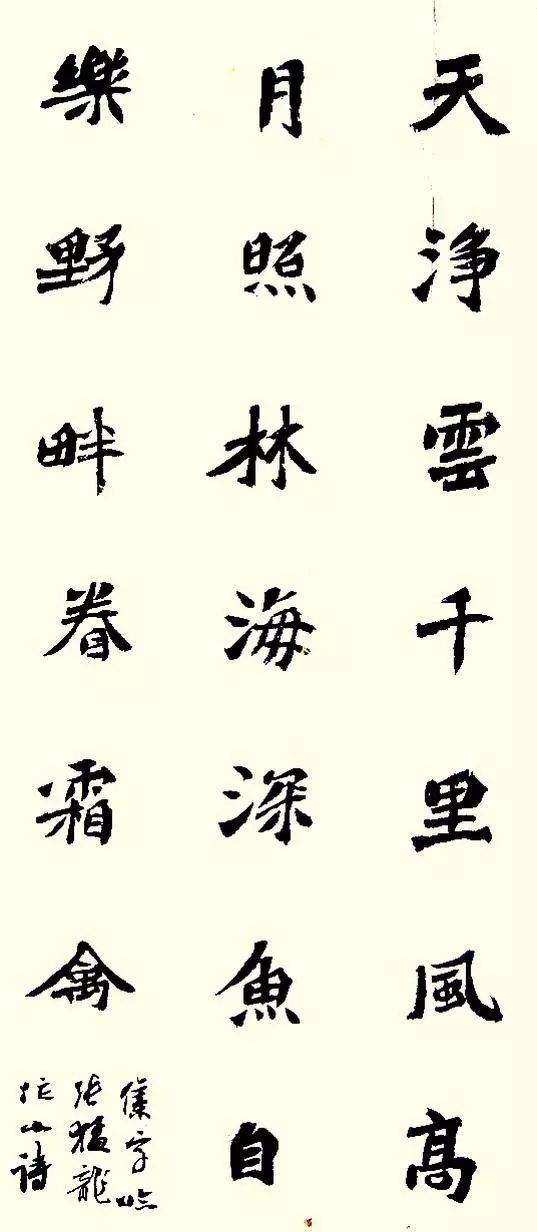 天淨雲千里風高
月照林海深魚自
樂野畔眷霜禽
集字臨
張猛龍
作小詩